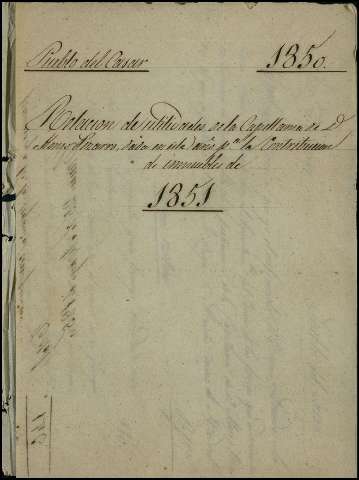 Pueblo del Casar
1850.
Relacion de utilidades de la Capellania de D.
Alonso Lucero, dada en este año pª la Contribucion
de inmuebles de
1851